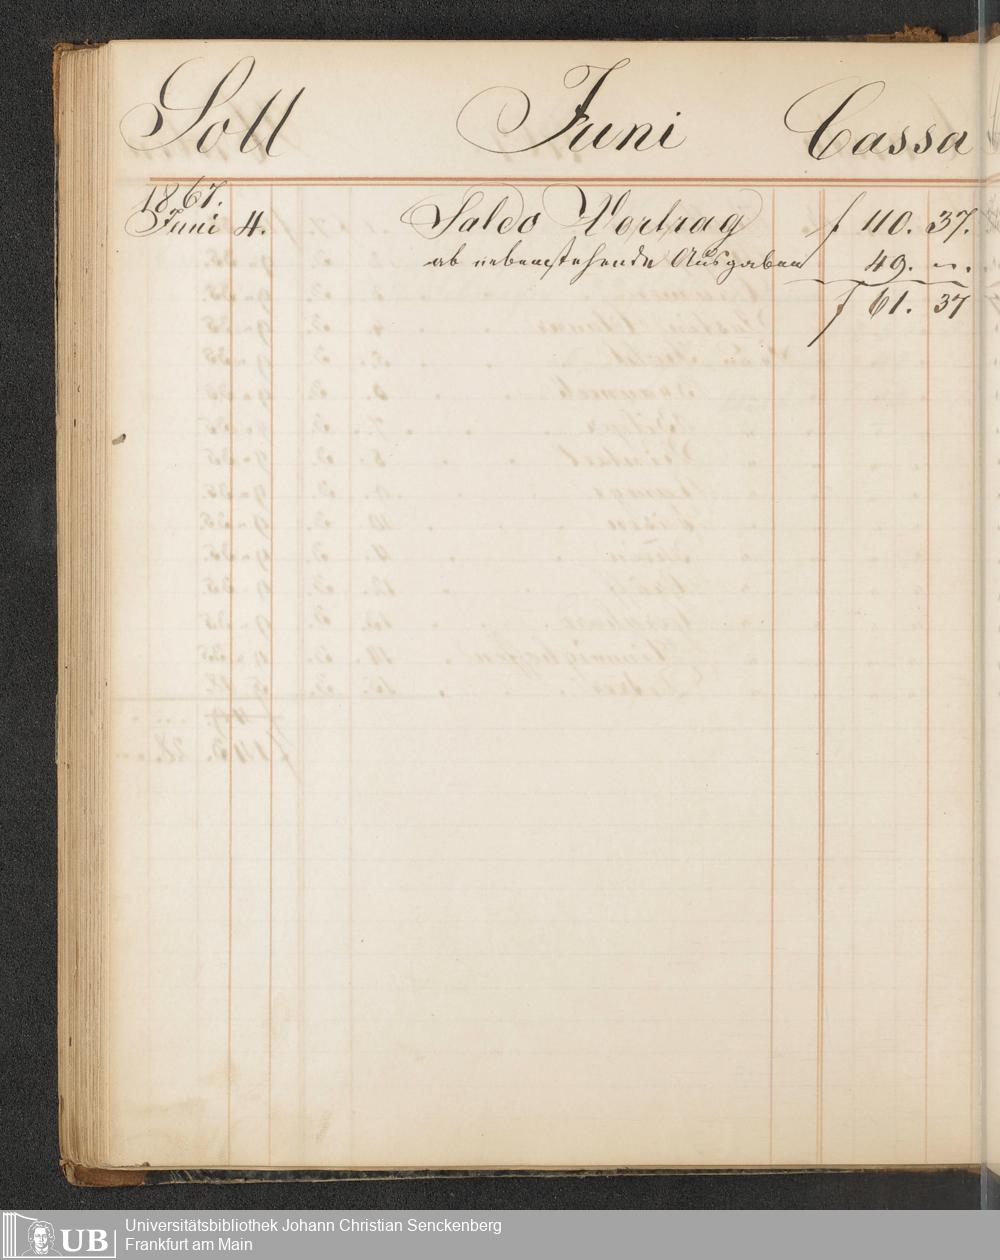 Soll Juni Cassa
1867.
Juni 4. Saldo Vortrag f 110. 37.
ab nebenstehende Ausgaben 49. –.
f 61. 37
UB
Universitätsbibliothek Johann Christian Senckenberg
Frankfurt am Main